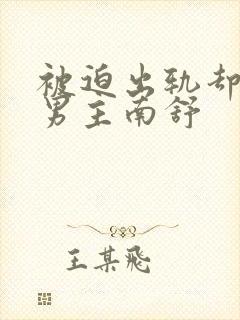 被迫出轨却
男主南舒
王某飛